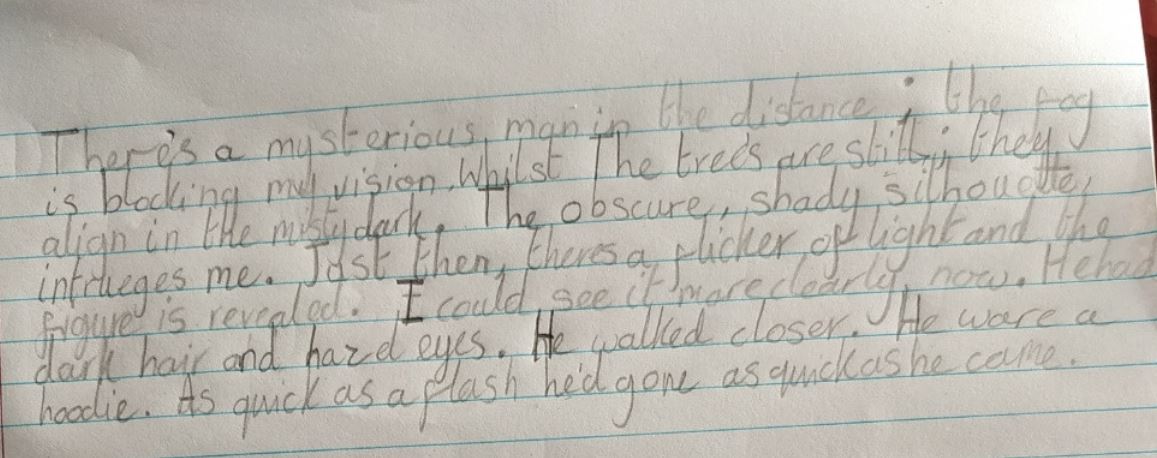 There's a mysterious man in the distance; the fog
is blocking my vision. Whilst The trees are still; they
align in the misty dark. The obscure, shady silhouette,
intrueges me. Just then, theres a flicker of light and the
figure is revealed. I could see it more clearly now. He had
dark hair and hazel eyes. He walked closer. He ware a
hoodie. As quick as a flash he'd gone as quick as he came.